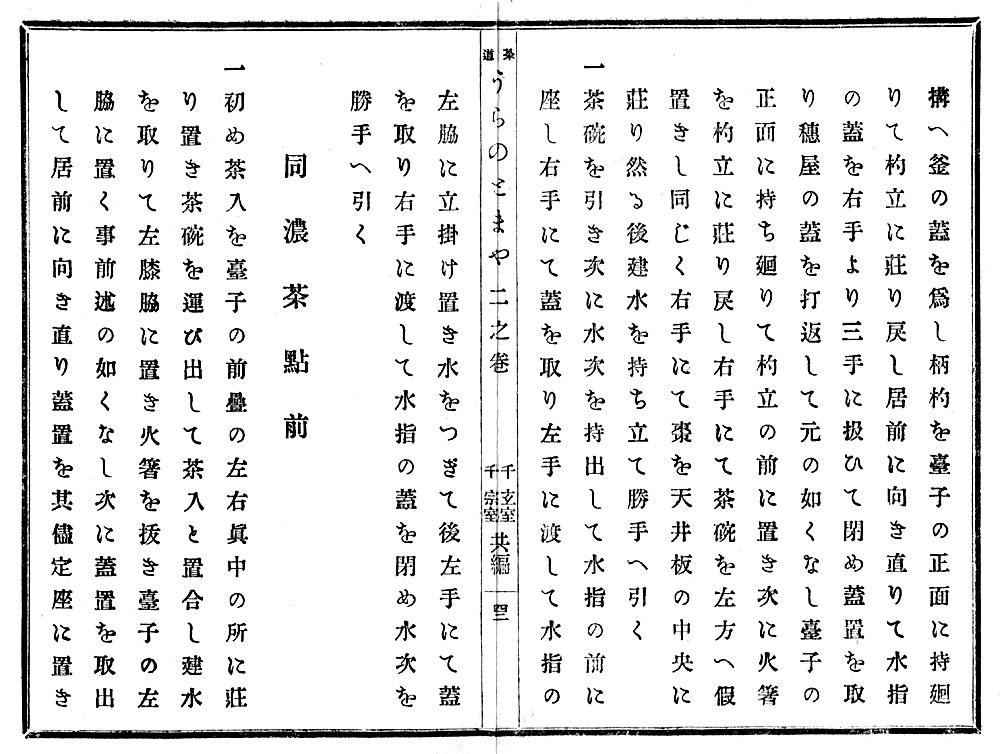 搆へ釜の蓋を爲し柄杓を臺子の正面に持廻
りて杓立に莊り戻し居前に向き直りて水指
の蓋を右手より三手に扱ひて閉め蓋置を取
り穗屋の蓋を打返して元の如くなし臺子の
正面に持ち廻りて杓立の前に置き次に火箸
を杓立に莊り戻し右手にて茶碗を左方へ假
置きし同じく右手にて棗を天井板の中央に
莊り然る後建水を持ち立て勝手へ引く
一茶碗を引き次に水次を持出して水指の前に
座し右手にて蓋を取り左手に渡して水指の
茶道
うらのとまや二之卷
千玄室
千宗室
共編
四三
左脇に立掛け置き水をつぎて後左手にて蓋
を取り右手に渡して水指の蓋を閉め水次を
勝手へ引く
同濃茶點前
一初め茶入を臺子の前疊の左右眞中の所に莊
り置き茶碗を運び出して茶入と置合し建水
を取りて左膝脇に置き火箸を拔き臺子の左
脇に置く事前述の如くなし次に蓋置を取出
して居前に向き直り蓋置を其儘定座に置き